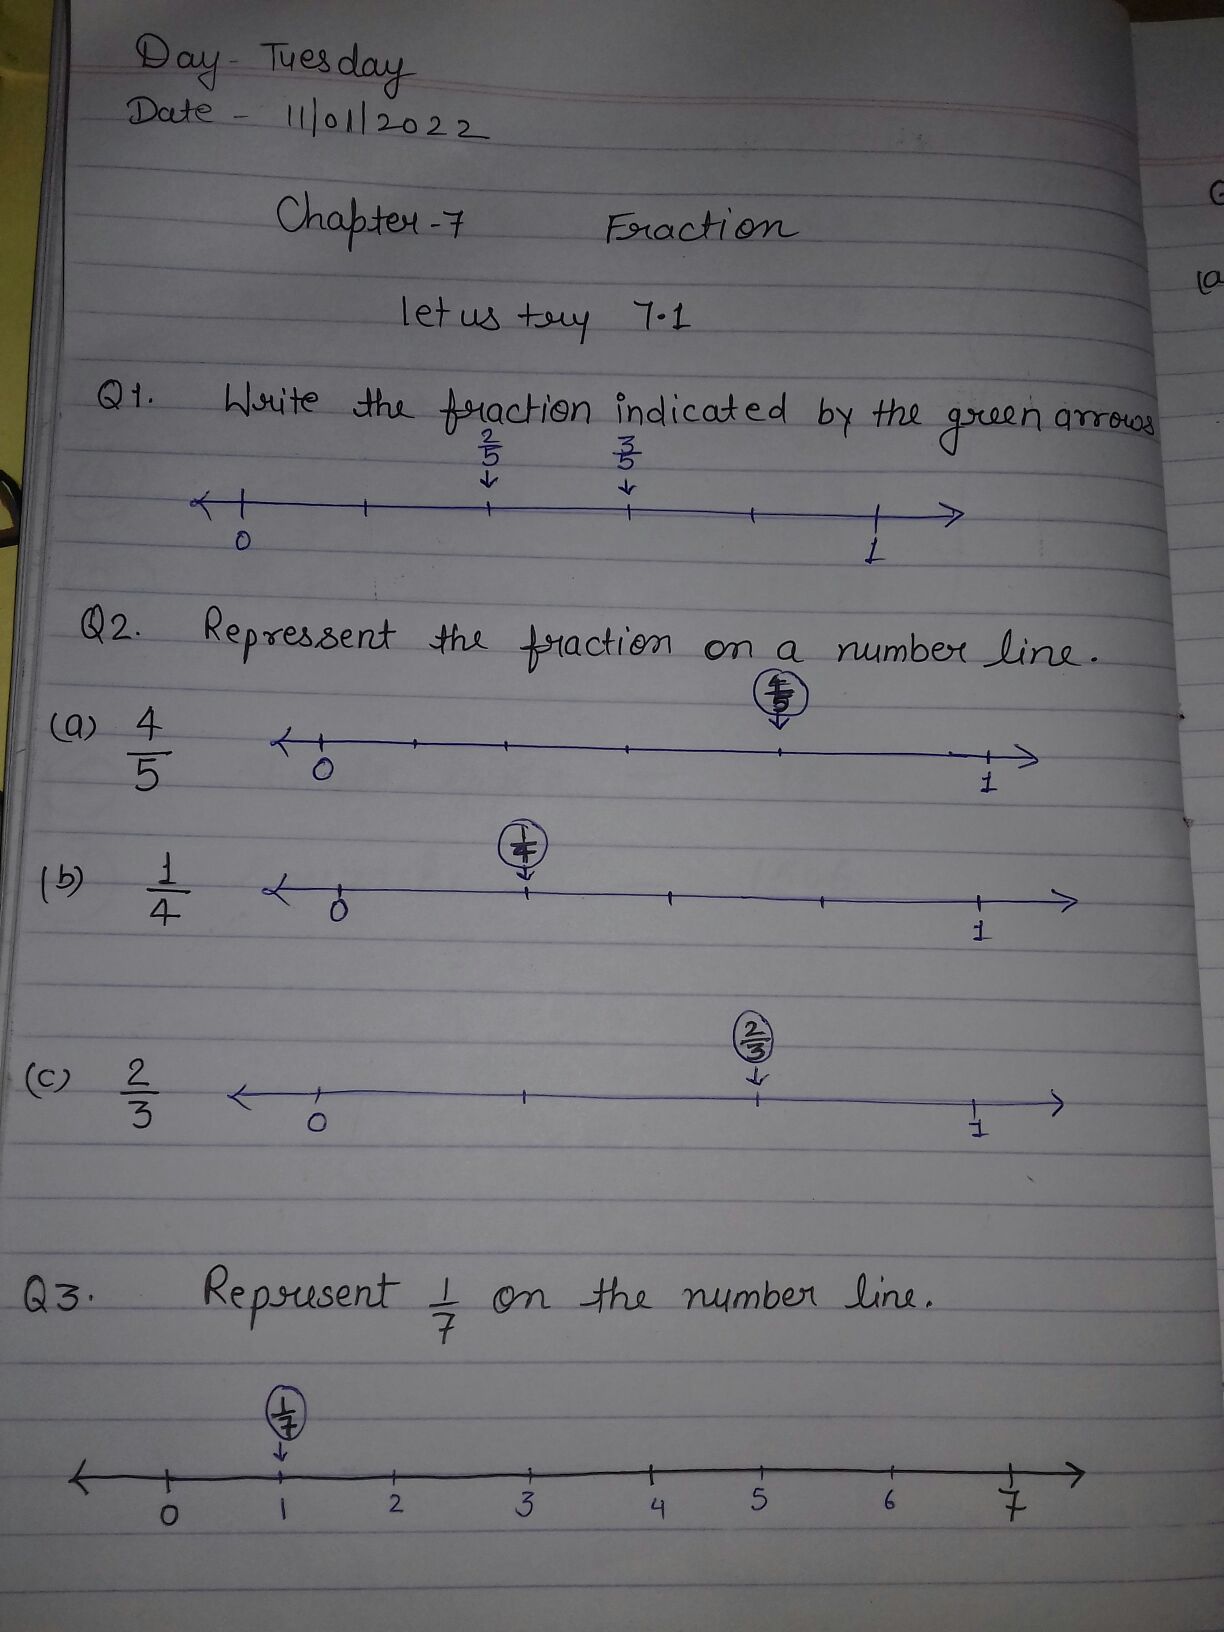 Day - Tuesday
Date - 11/01/2022
Chapter-7 Fraction
let us try 7.1
Q1. Write the fraction indicated by the green arrows
2/5 3/5
0 1
Q2. Repressent the fraction on a number line.
4/5
(a) 4/5
0 1
1/4
(b) 1/4
0 1
2/3
(c) 2/3
0 1
Q3. Represent 1/7 on the number line.
1/7
0 1 2 3 4 5 6 7
(a